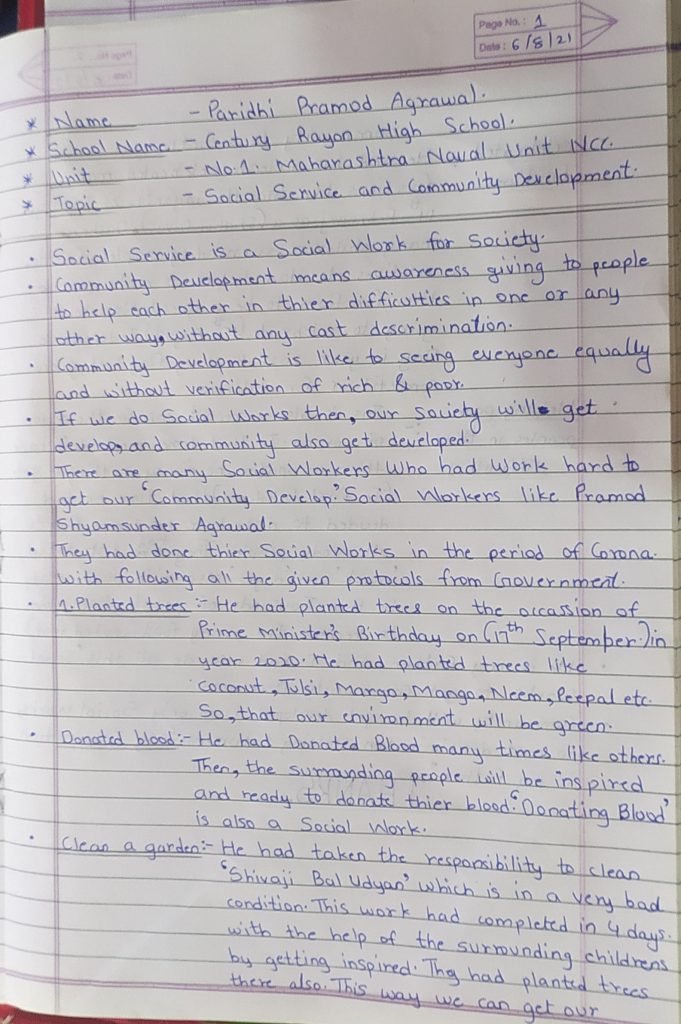 Page No.: 1
Date: 6/8/21
* Name - Paridhi Pramod Agrawal.
* School Name - Century Rayon High School.
* Unit - No.1. Maharashtra Naval Unit NCC.
* Topic - Social Service and Community Development.
• Social Service is a Social Work for Society.
• Community Development means awareness giving to people
to help each other in thier difficulties in one or any
other way, without any cast descrimination.
• Community Development is like to seeing everyone equally
and without verification of rich & poor.
• If we do Social Works then, our society will get
develop, and community also get developed.
• There are many Social Workers Who had Work hard to
get our 'Community Develop.' Social Workers like Pramod
Shyamsunder Agrawal.
• They had done thier Social Works in the period of Corona.
with following all the given protocols from Government.
• 1. Planted trees :- He had planted trees on the occassion of
Prime Minister's Birthday on (17th September.) in
year 2020. He had planted trees like
Coconut, Tulsi, Margo, Mango, Neem, Peepal etc.
So, that our environment will be green.
• Donated blood:- He had Donated Blood many times like others.
Then, the surrounding people will be inspired
and ready to donate thier blood. 'Donating Blood'
is also a Social Work.
• Clean a garden:- He had taken the responsibility to clean
'Shivaji Bal Udyan' which is in a very bad
condition. This work had completed in 4 days.
with the help of the surrounding childrens
by getting inspired. They had planted trees
there also. This way we can get our